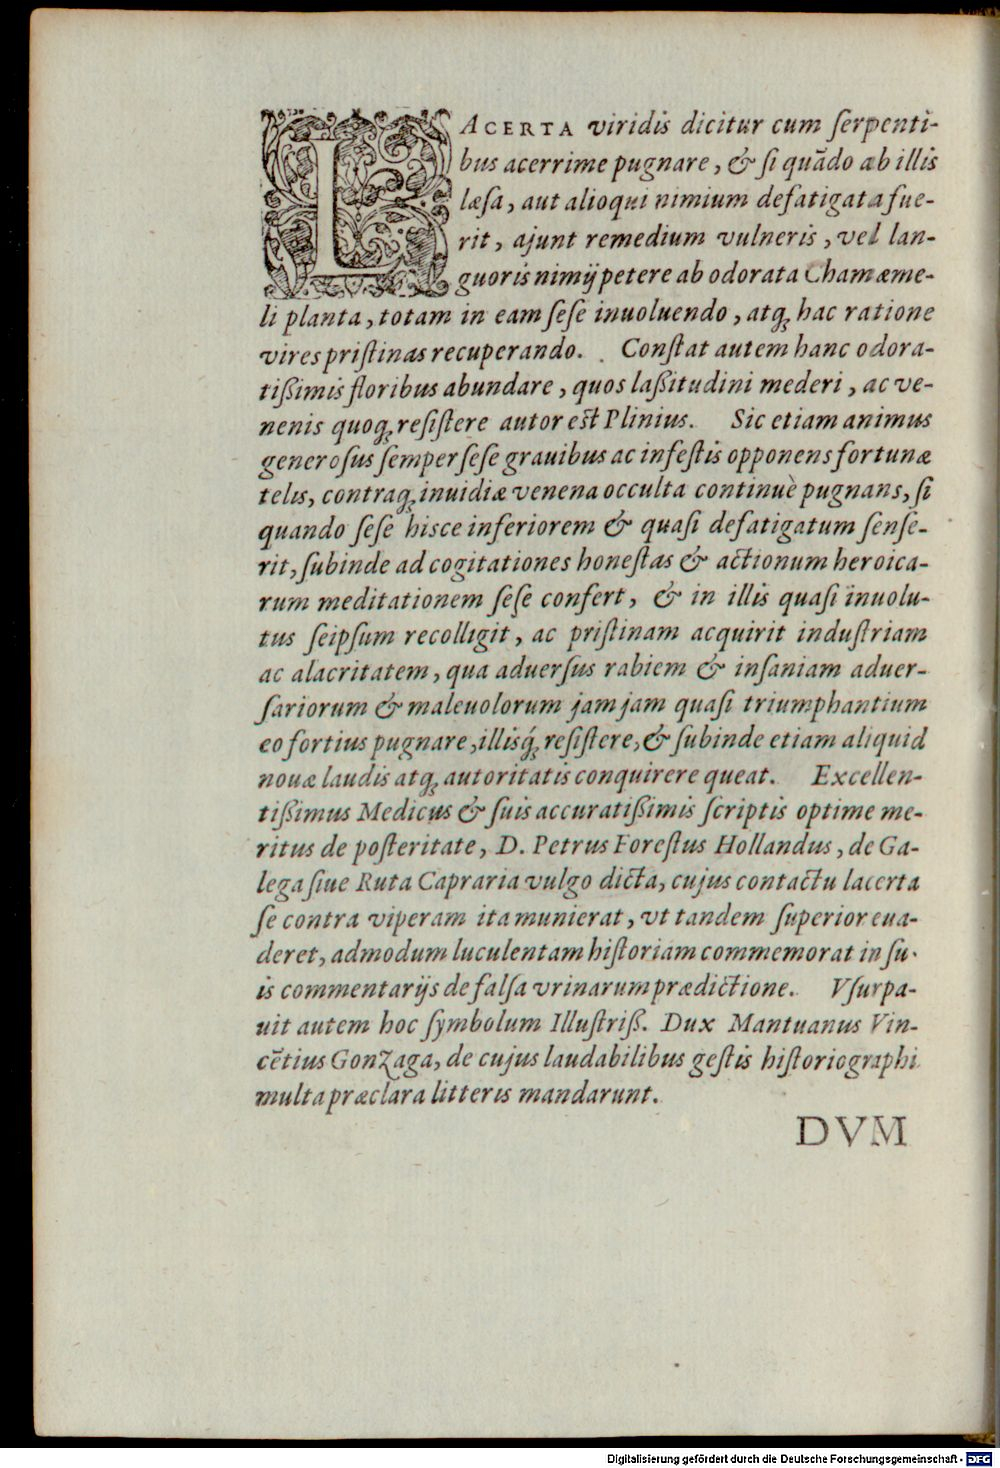 LACERTA viridis dicitur cum ſerpenti-
bus acerrime pugnare, & ſi quādo ab illis
læſa, aut alioqui nimium defatigata fue-
rit, ajunt remedium vulneris, vel lan-
guoris nimij petere ab odorata Chamæme-
li planta, totam in eam ſeſe inuoluendo, atq; hac ratione
vires priſtinas recuperando. Conſtat autem hanc odora-
tißimis floribus abundare, quos laßitudini mederi, ac ve-
nenis quoq; reſiſtere autor eſt Plinius. Sic etiam animus
generoſus ſemper ſeſe grauibus ac infeſtis opponens fortunæ
telis, contraq; inuidiæ venena occulta continuè pugnans, ſi
quando ſeſe hisce inferiorem & quaſi defatigatum ſenſe-
rit, ſubinde ad cogitationes honeſtas & actionum heroica-
rum meditationem ſeſe confert, & in illis quaſi inuolu-
tus ſeipſum recolligit, ac priſtinam acquirit induſtriam
ac alacritatem, qua aduerſus rabiem & inſaniam aduer-
ſariorum & maleuolorum jam jam quaſi triumphantium
eo fortius pugnare, illisq́; reſiſtere, & ſubinde etiam aliquid
nouæ laudis atq; autoritatis conquirere queat. Excellen-
tißimus Medicus & ſuis accuratißimis ſcriptis optime me-
ritus de poſteritate, D. Petrus Foreſtus Hollandus, de Ga-
lega ſiue Ruta Capraria vulgo dicta, cujus contactu lacerta
ſe contra viperam ita munierat, vt tandem ſuperior eua-
deret, admodum luculentam hiſtoriam commemorat in ſu-
is commentarijs de falſa vrinarum prædictione. Vſurpa-
uit autem hoc ſymbolum Illuſtriß. Dux Mantuanus Vin-
cētius Gonzaga, de cujus laudabilibus geſtis hiſtoriographi
multa præclara litteris mandarunt.
DVM
Digitalisierung gefördert durch die Deutsche Forschungsgemeinschaft - DFG